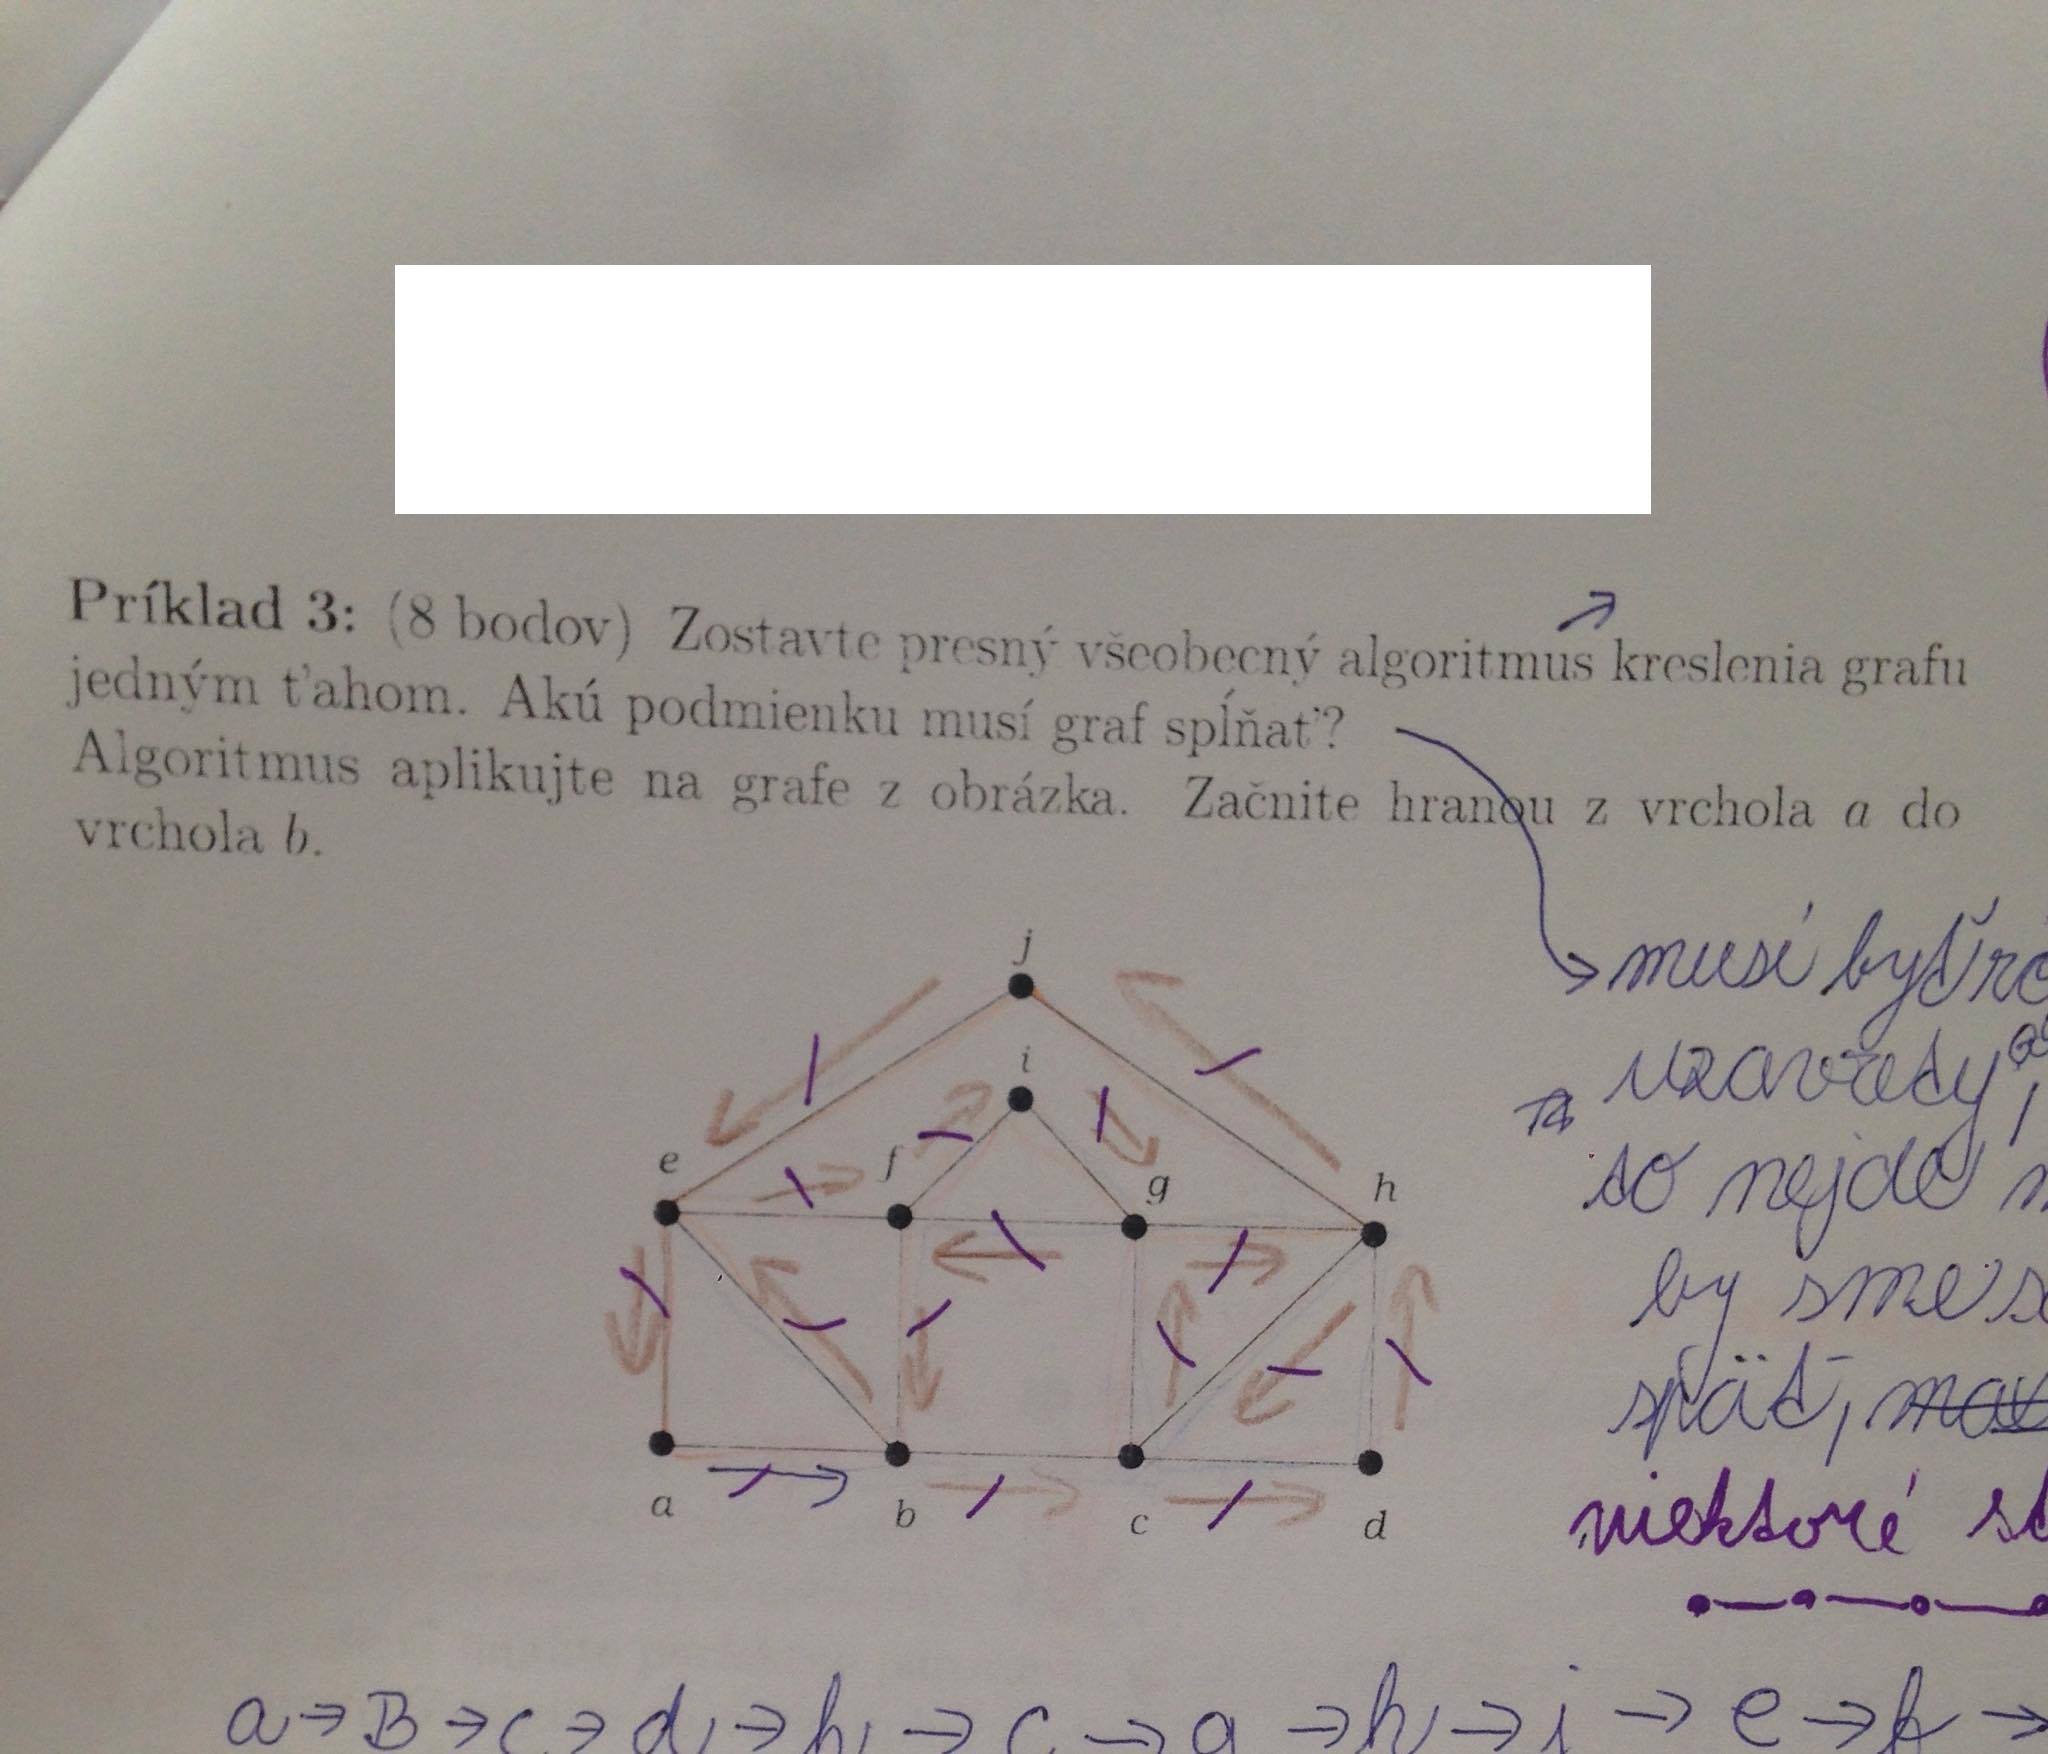 Príklad 3: (8 bodov) Zostavte presný všeobecný algoritmus kreslenia grafu
jedným ťahom. Akú podmienku musí graf spĺňať?
Algoritmus aplikujte na grafe z obrázka. Začnite hranou z vrchola a do
vrchola b.
j
i
e
f
g
h
a
b
c
d
musí byť
so nejde
by sme
späť,
niektoré
a → B → c → d → h → c → g → h → j → e → f →